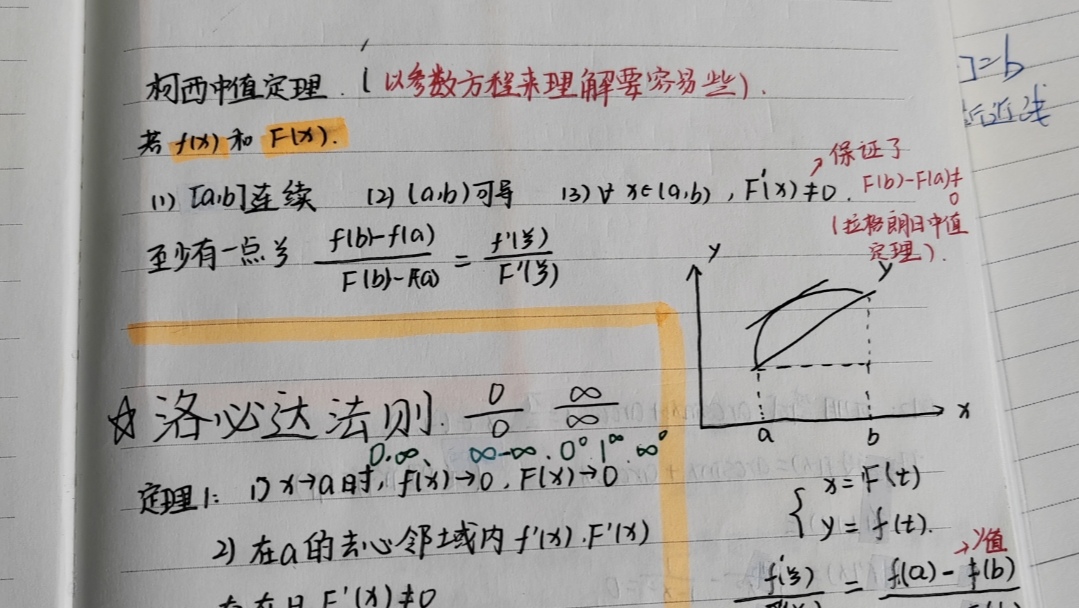 柯西中值定理.(以参数方程来理解要容易些).
若 f(x) 和 F(x).
(1) [a,b]连续 (2) (a,b)可导 (3) ∀ x∈(a,b), F'(x)≠0.
保证了
F(b)-F(a)≠0
(拉格朗日中值
定理).
至少有一点ξ f(b)-f(a) / F(b)-F(a) = f'(ξ) / F'(ξ)
y
y
a b x
☆洛必达法则. 0/0 ∞/∞
0·∞、 ∞-∞. 0⁰ 1^∞. ∞⁰
定理1: 1) x→a时, f(x)→0, F(x)→0
2) 在a的去心邻域内 f'(x).F'(x)
存在且 F'(x)≠0
{ x=F(t)
y=f(t).
→y值
f'(ξ) = f(a)-f(b)
]=b